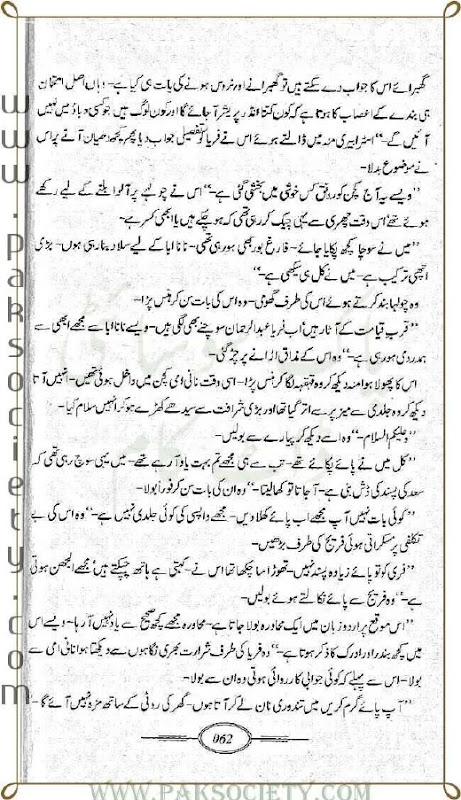 گھبرائے اس کا جواب دے سکتے ہیں تو گھبرانے اور نروس ہونے کی بات ہی کیا ہے۔ وہاں اصل امتحان
ہی بندے کے اعصاب کا ہوتا ہے کہ کون کتنا انڈر پریشر آجائے گا اور کون لوگ ہیں جو کسی دباؤ میں نہیں
آئیں گے۔“ اسٹرابیری منہ میں ڈالتے ہوئے اس نے فریا کو تفصیلی جواب دیا پھر کچھ دھیان آنے پر اس
نے موضوع بدلا۔
”ویسے یہ آج کچن کو رونق کس خوشی میں بخشی گئی ہے۔“ اس نے چولہے پر آلو ابلنے کے لیے رکھے
ہوئے تھے اس وقت چھری سے یہی چیک کررہی تھی کہ ہوچکے ہیں یا ابھی کسر ہے۔
”میں نے سوچا کچھ پکایا جائے۔ فارغ بور بھی ہورہی تھی۔ نانا ابا کے لیے سلاد بنا رہی ہوں۔ بڑی
اچھی ترکیب ہے۔ میں نے کل ہی سیکھی ہے۔“
وہ چولہا بند کرتے ہوئے اس کی طرف گھومی۔ وہ اس کی بات سن کر ہنس پڑا۔
”قرب قیامت کے آثار ہیں اب فریا عبدالرحمان سوچنے بھی لگی ہیں۔ ویسے نانا ابا سے مجھے ابھی سے
ہمدردی ہورہی ہے۔“ وہ اس کے مذاق اڑانے پر چڑ گئی۔
اس کا پھولا ہوا منہ دیکھ کر وہ قہقہہ لگا کر ہنس پڑا۔ اسی وقت نانی امی کچن میں داخل ہوئی تھیں۔ انہیں آتا
دیکھ کر وہ جلدی سے میز پر سے اتر گیا تھا اور بڑی شرافت سے سیدھے کھڑے ہوکر انہیں سلام کیا۔
”وعلیکم السلام۔“ وہ اسے دیکھ کر پیار سے بولیں۔
”کل میں نے پائے پکائے تھے۔ تب سے ہی مجھے تم بہت یاد آرہے تھے۔ میں یہی سوچ رہی تھی کہ
سعد کی پسند کی ڈش بنی ہے۔ آجاتا تو کھالیتا۔“ وہ ان کی بات سن کر فوراً بولا۔
”کوئی بات نہیں آپ مجھے اب پائے کھلادیں۔ مجھے واپسی کی کوئی جلدی نہیں ہے۔“ وہ اس کی بے
تکلفی پر مسکراتی ہوئی فریج کی طرف بڑھیں۔
”فری کو تو پائے زیادہ پسند نہیں۔ تھوڑا سا چکھا تھا اس نے۔ کہتی ہے ہاتھ چپکتے ہیں مجھے الجھن ہوتی
ہے۔“ وہ فریج سے پائے نکالتے ہوئے بولیں۔
”اس موقع پر اردو زبان میں ایک محاورہ بولا جاتا ہے۔ محاورہ مجھے کچھ صحیح سے یاد نہیں آرہا۔ ویسے اس
میں کچھ بندر اور ادرک کا ذکر ہوتا ہے۔“ وہ فریا کی طرف شرارت بھری نگاہوں سے دیکھتا ہوا نانی امی سے
بولا۔ اس سے پہلے کہ کوئی جوابی کارروائی ہوتی وہ ان سے بولا۔
”آپ پائے گرم کریں میں تندوری نان لے کر آتا ہوں۔ گھر کی روٹی کے ساتھ مزہ نہیں آئے گا۔“
062
www.paksociety.com
WWW.PAKSOCIETY.COM